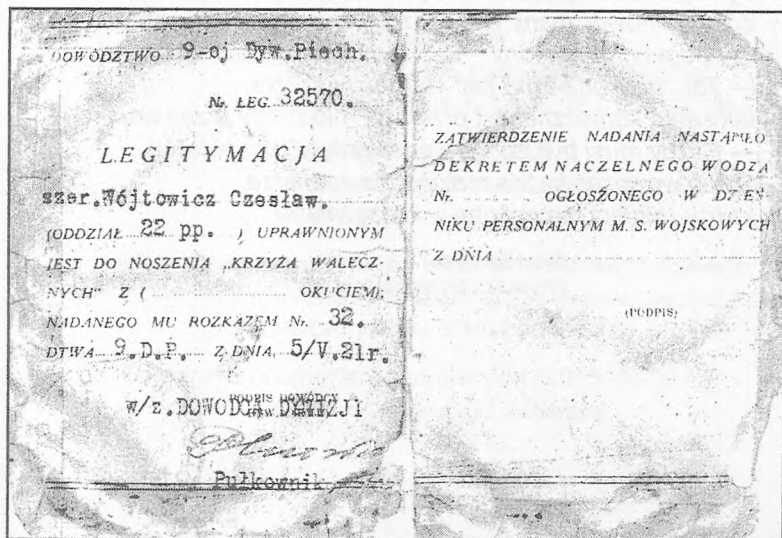 DOWÓDZTWO 9-ej Dyw.Piech.
Nr. LEG. 32570.
LEGITYMACJA
szer.Wójtowicz Czesław.
(ODDZIAŁ 22 pp. ) UPRAWNIONYM
JEST DO NOSZENIA „KRZYŻA WALECZ-
NYCH" Z ( OKUCIEM),
NADANEGO MU ROZKAZEM Nr. 32.
DTWA 9.D.P. Z DNIA, 5/V.21r.
PODPIS DOWÓDCY
w/z.DOWÓDCA DYWIZJI
Pułkownik
ZATWIERDZENIE NADANIA NASTĄPIŁO
DEKRETEM NACZELNEGO WODZA
Nr. OGŁOSZONEGO W DZIEN
NIKU PERSONALNYM M. S. WOJSKOWYCH
Z DNIA
(PODPIS)